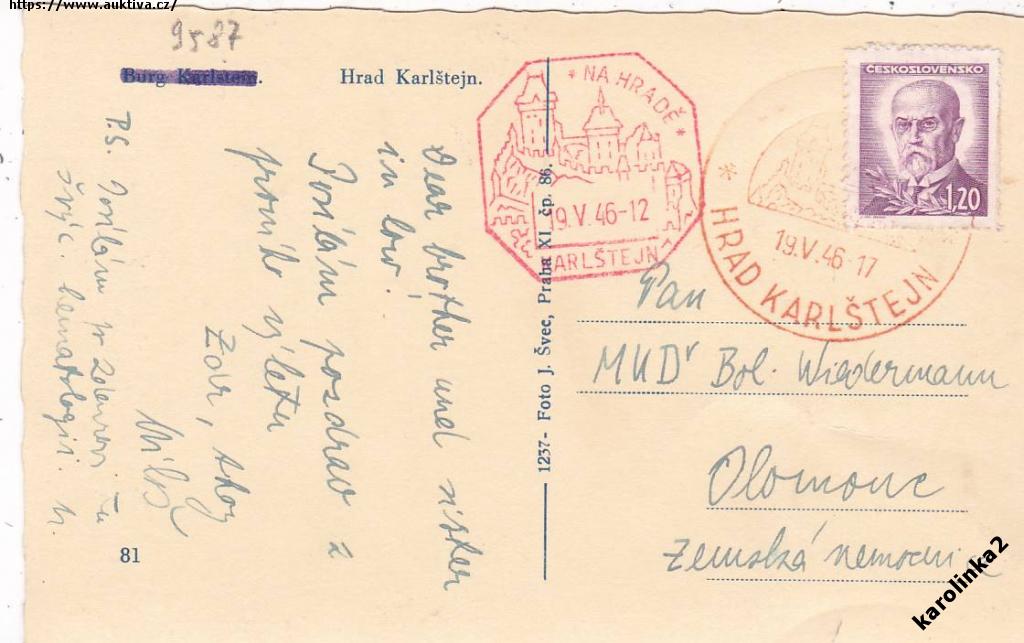 https://www.auktiva.cz/
9587
Burg Karlstein.
Hrad Karlštejn.
* NA HRADĚ *
19.V.46-12
KARLŠTEJN
ČESKOSLOVENSKO
1,20
*
19.V.46-17
HRAD KARLŠTEJN
Dear brother und sister
in law!
Posílám pozdrav z
prvního výletu
Zdr,
P.S. Posílám
švýc. hematologii.
1237- Foto J. Švec, Praha XI, čp. 86.
Pan
MUDr Bol. Wiedermann
Olomouc
Zemská nemocnice
81
karolinka2